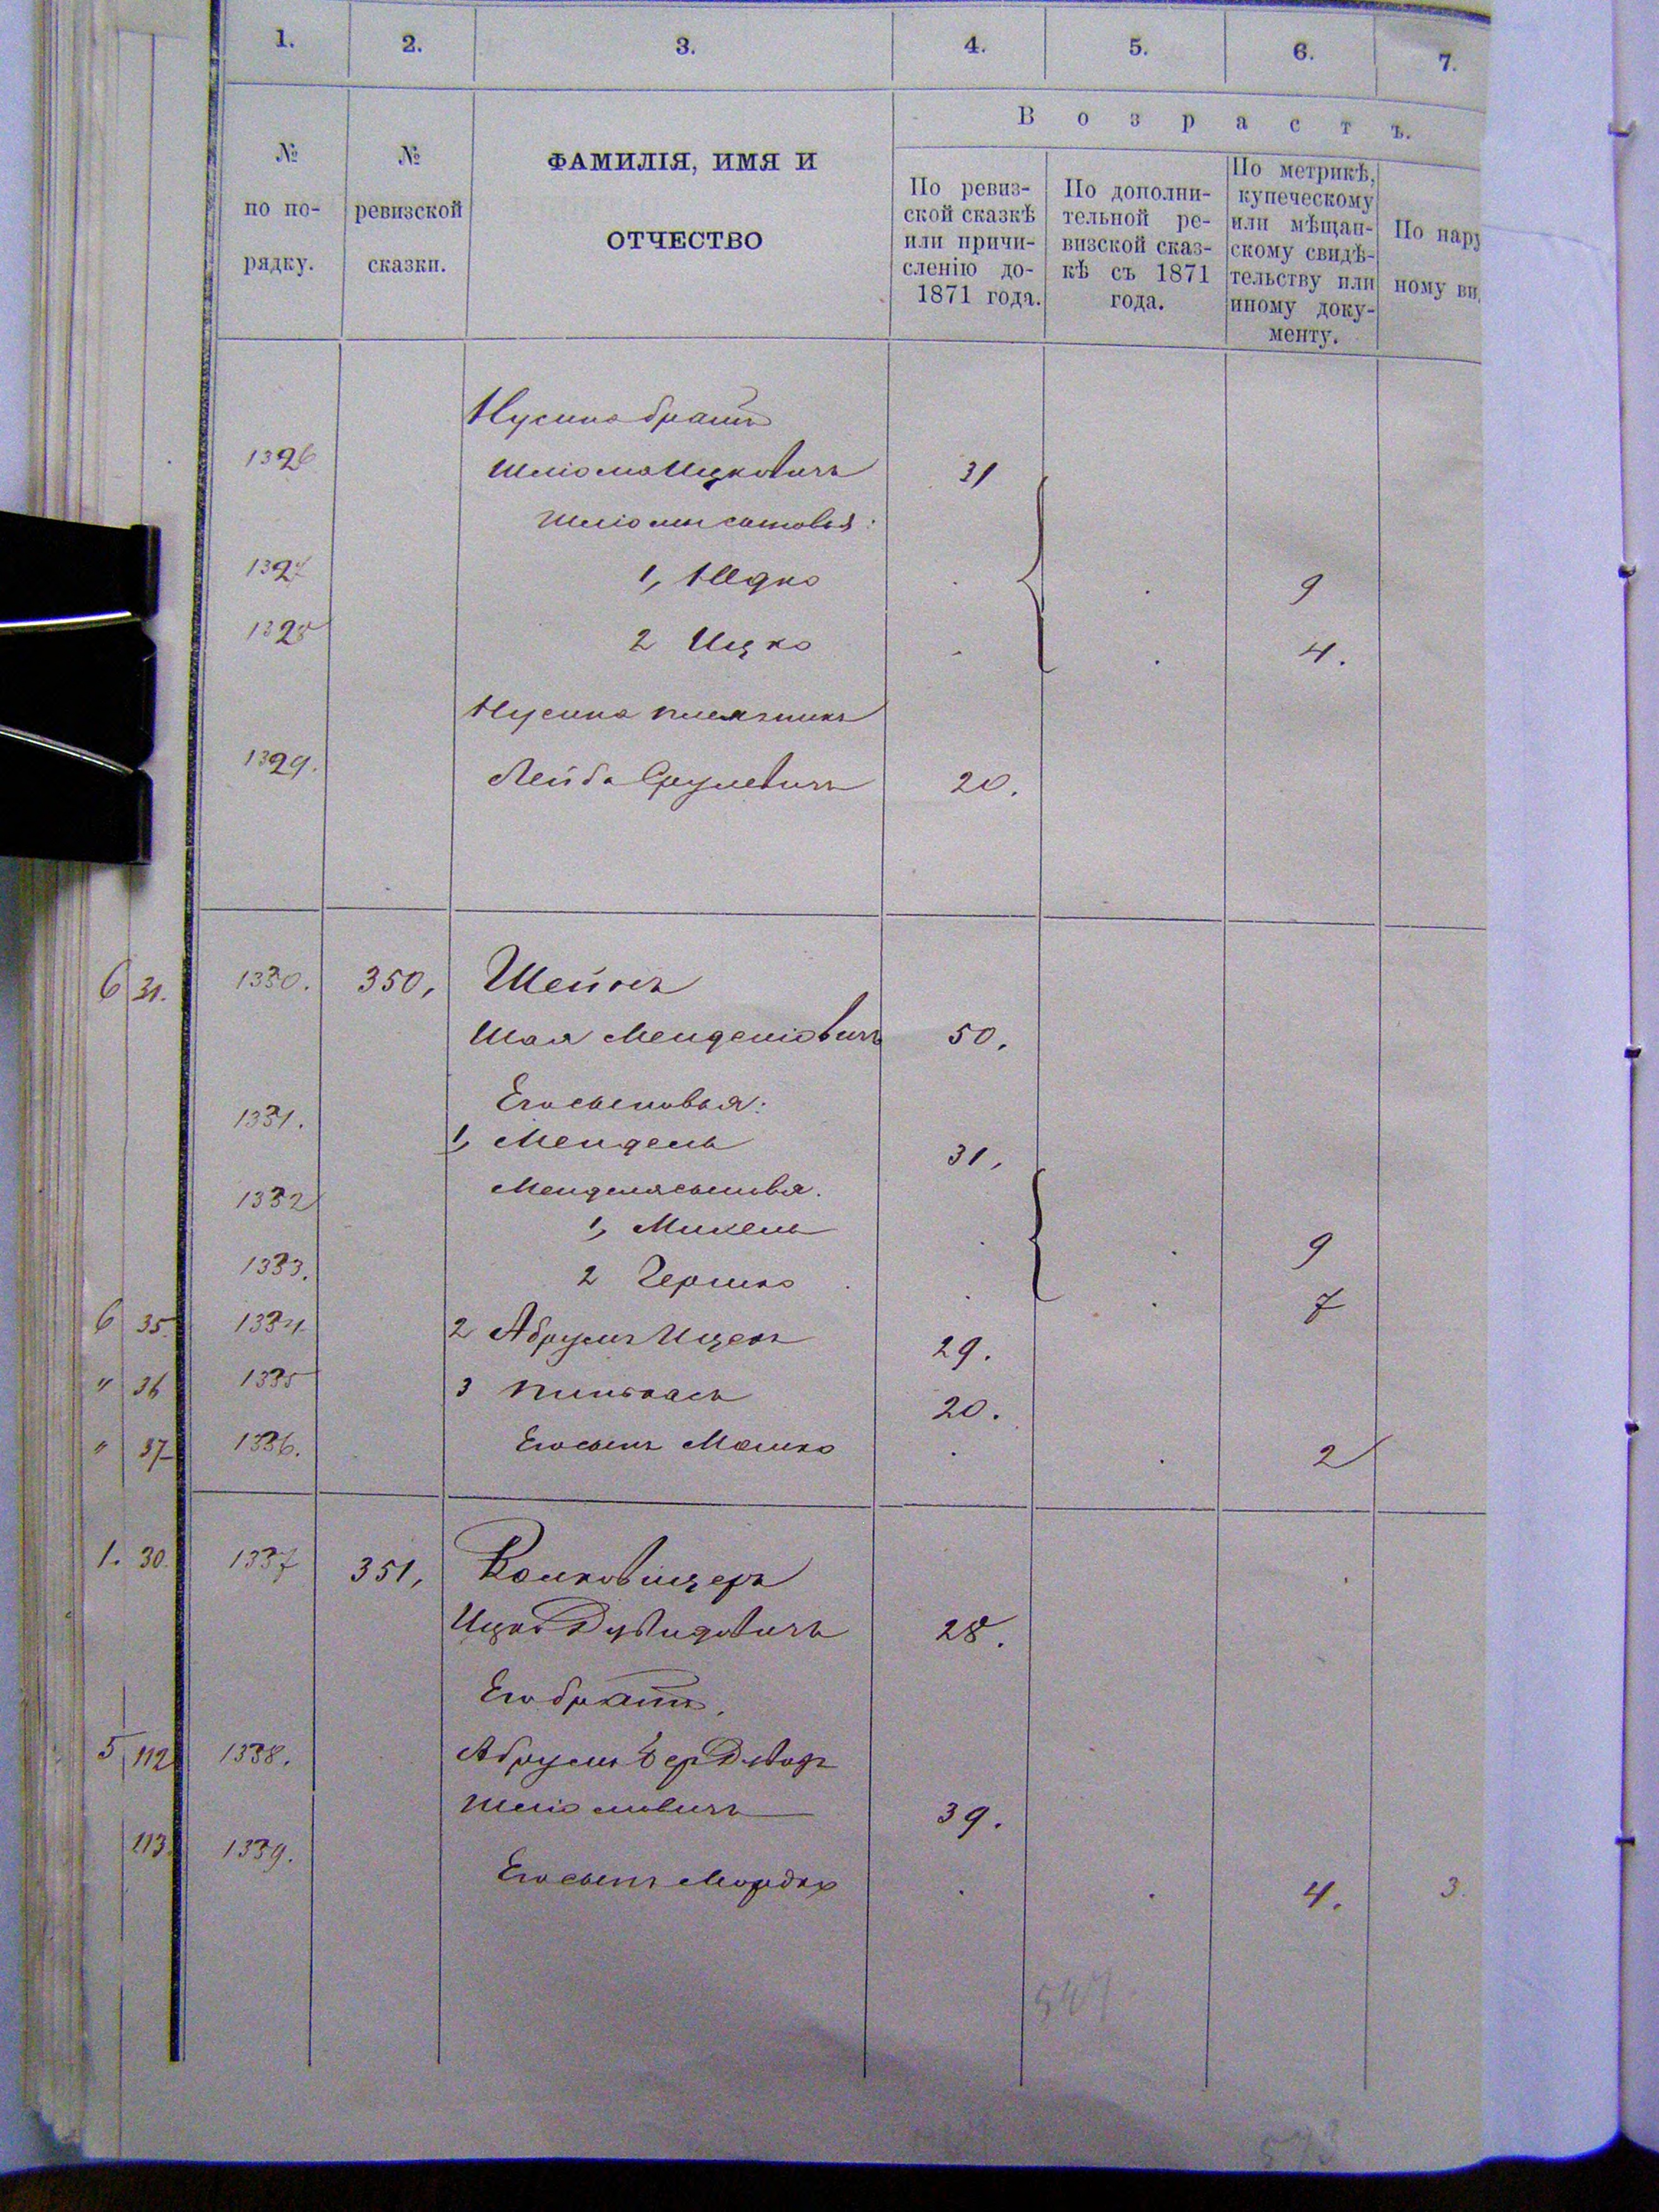 1. 2. 3. 4. 5. 6. 7.
В о з р а с т ъ.
№ по по-рядку.
№ ревизской сказки.
ФАМИЛІЯ, ИМЯ И
ОТЧЕСТВО
По ревиз-
ской сказкѣ
или причи-
сленію до-
1871 года.
По дополни-
тельной ре-
визской сказ-
кѣ съ 1871
года.
По метрикѣ,
купеческому
или мѣщан-
скому свидѣ-
тельству или
иному доку-
менту.
По нару
ному ви
Нусина братъ
1326 Шліома Ицковичъ 31
Шліомы сыновья:
1327 1, . . 9
1328 2 Ицко . . 4.
Нусина племянникъ
1329. Лейба Срулевичъ 20.
6 31. 1330. 350, Шейнъ
Шая Менделіовичъ 50.
Его сыновья:
1331. 1, Мендель 31,
Менделя сыновья.
1332 1, Михель . . 9
1333. 2 Гершко . . 7
6 35. 1334 2 Абрумъ Ицекъ 29.
" 36 1335 3 Пинькасъ 20.
" 37 1336. Его сынъ Мошко . . 2
1. 30. 1337 351,
Ицко Дувидовичъ 28.
Его братъ,
5 112 1338. Абрумъ Бер Дувидъ
Шліомовичъ 39.
113. 1339. Его сынъ Мордко . . 4. 3.
547
573